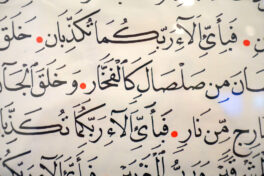 ن • فَبِأَيِّ آلَاءِ رَبِّكُمَا تُكَذِّبَانِ • خَلَقَ
ـانَ مِن صَلْصَالٍ كَالْفَخَّارِ • وَخَلَقَ الْجَانَّ
ـارِجٍ مِّن نَّارٍ • فَبِأَيِّ آلَاءِ رَبِّكُمَا تُكَذِّبَا